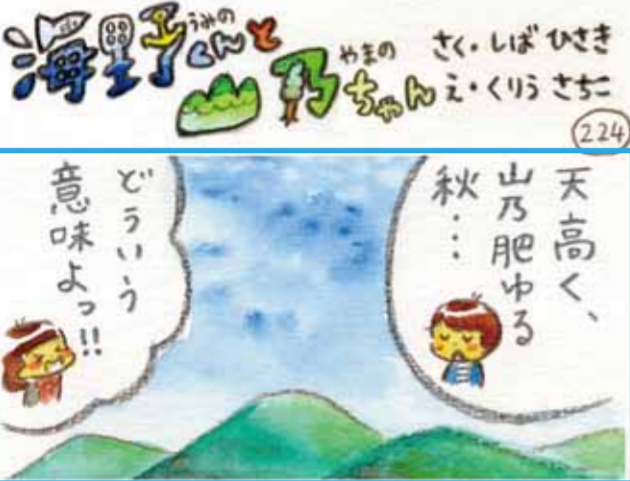 海野くんと
うみの
山乃ちゃん
やまの
さく・しば ひさき
え・くりう さちこ
224
天高く、
山乃肥ゆる
秋…
どういう
意味よっ!!